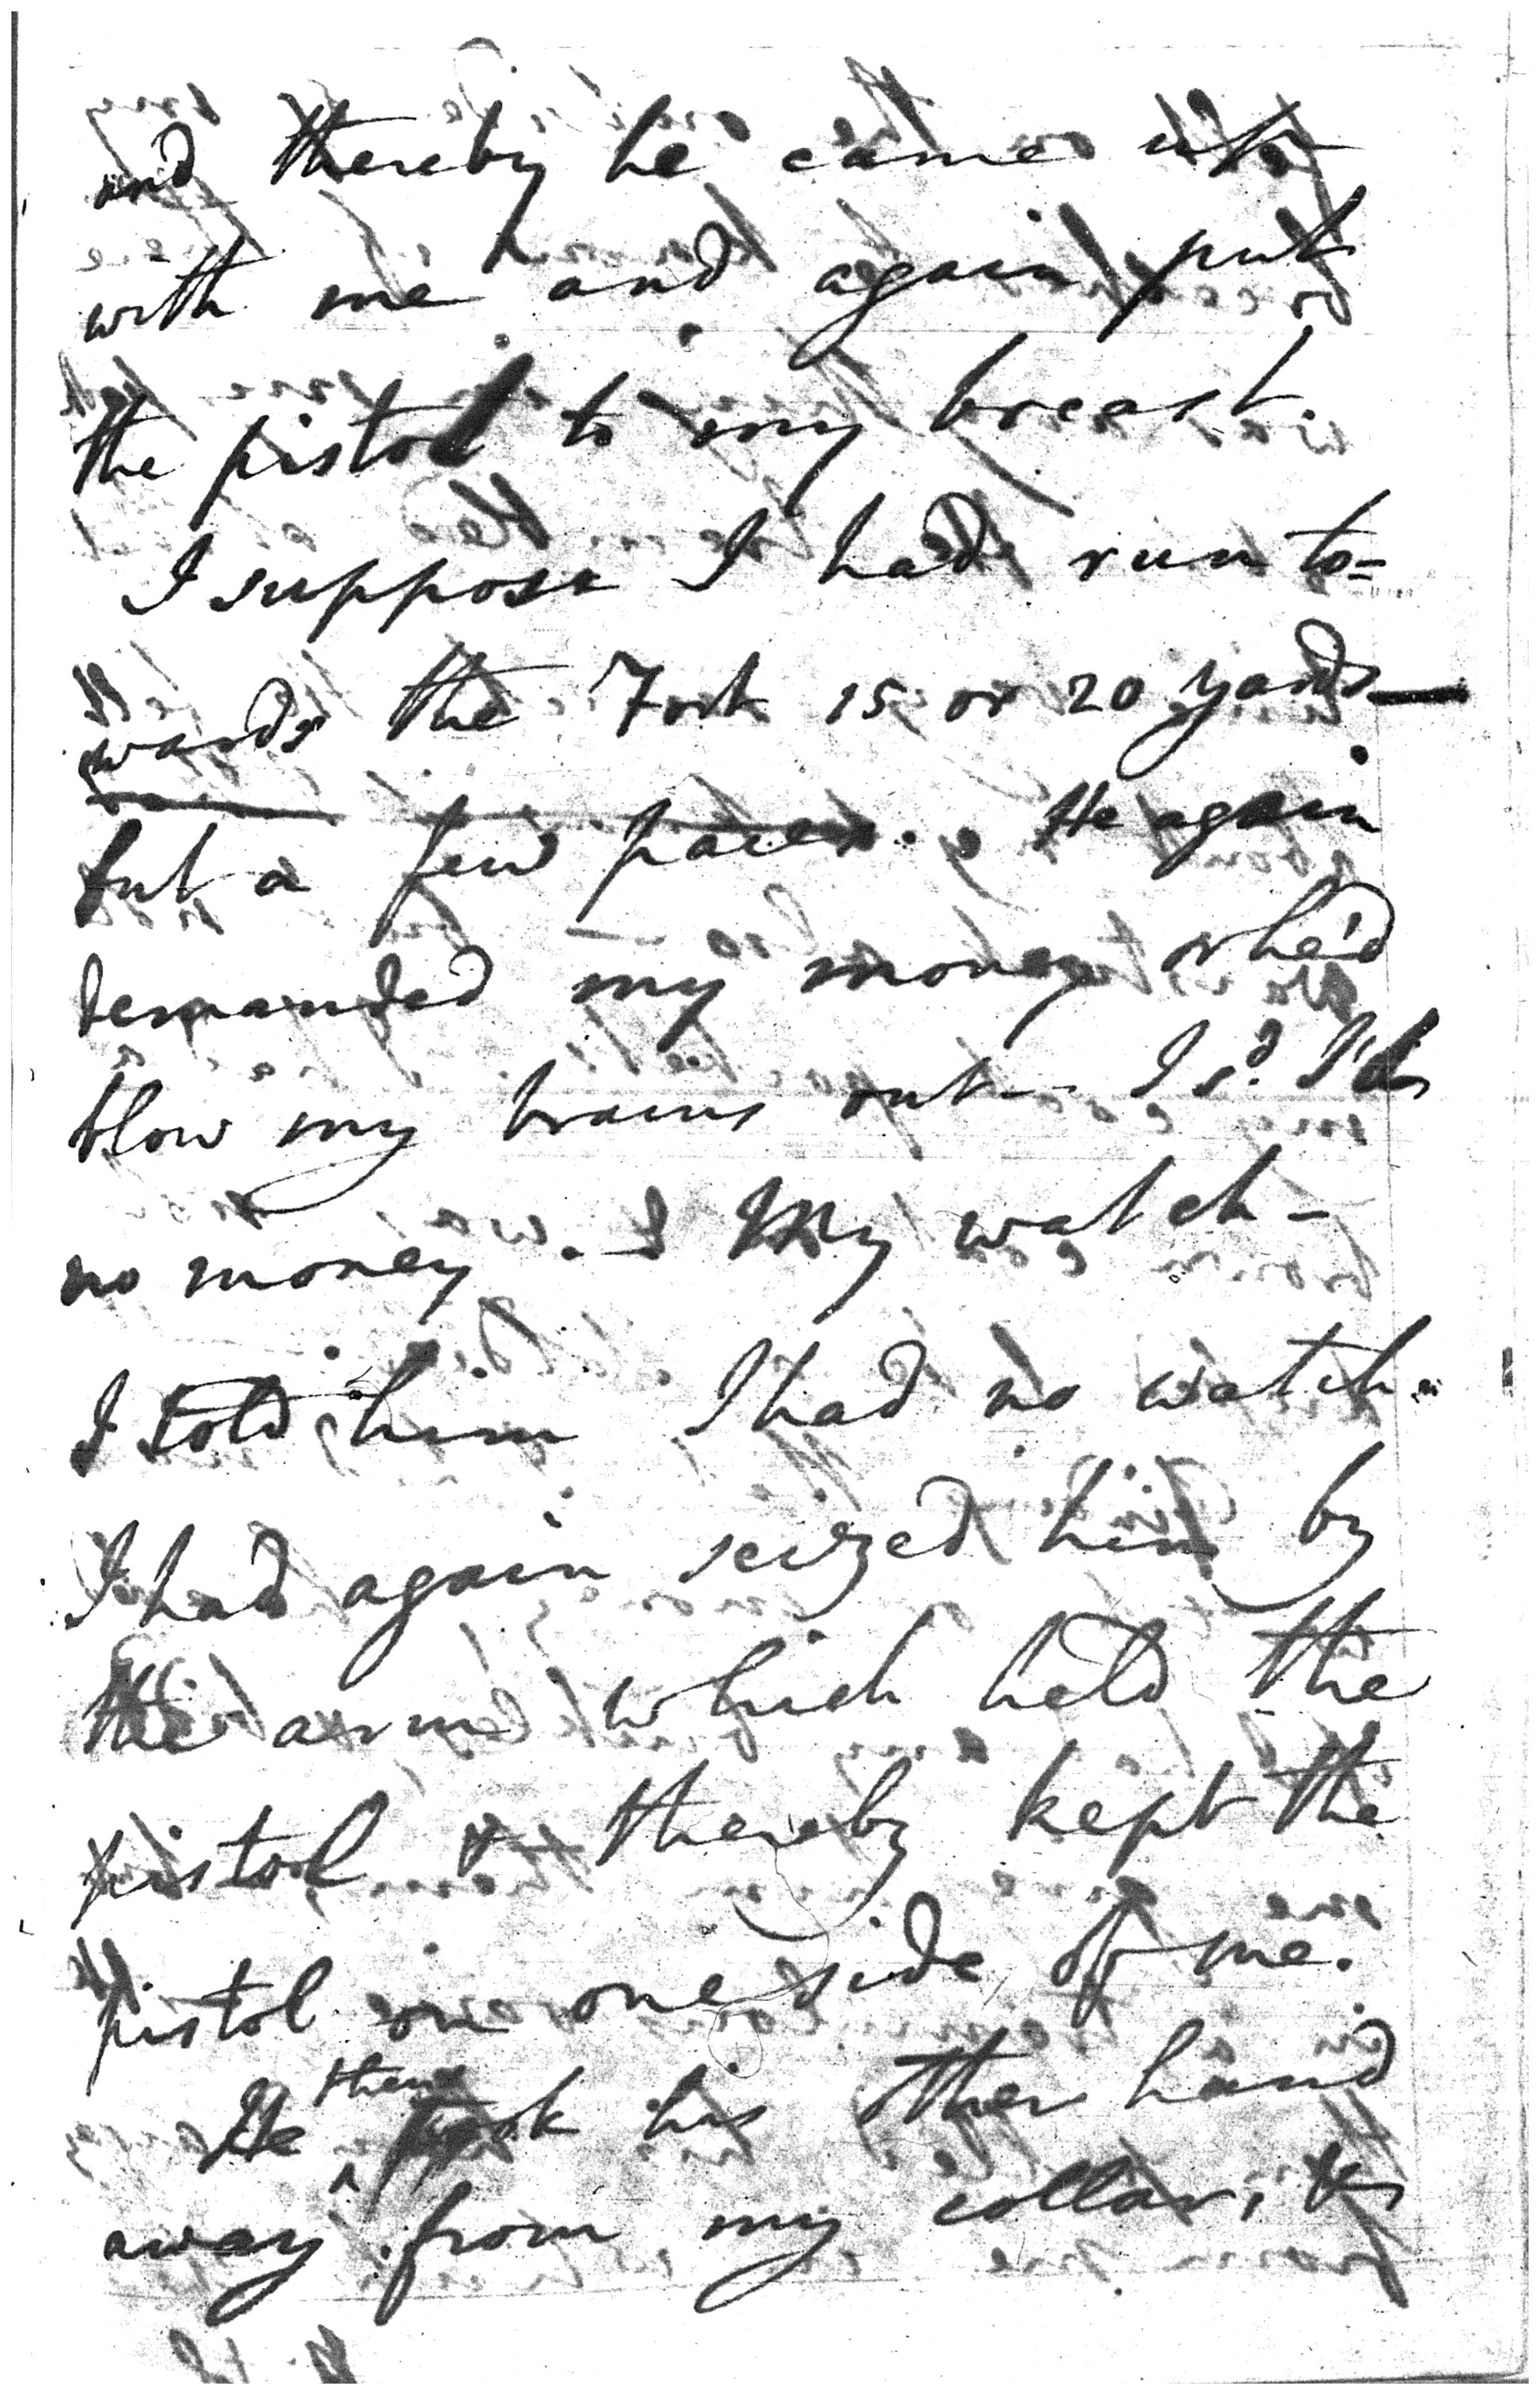 and thereby he came up
with me and again put
the pistol to my breast.
I suppose I had run to=
wards the Fork 15 or 20 yards—
but a few paces. He again
demanded my money or he'd
blow my brains out— I sd. I'd
no money. My watch—
I told him I had no watch.
I had again seized him by
the arm which held the
pistol & thereby kept the
pistol on one side of me.
He then took his other hand
away from my collar, &